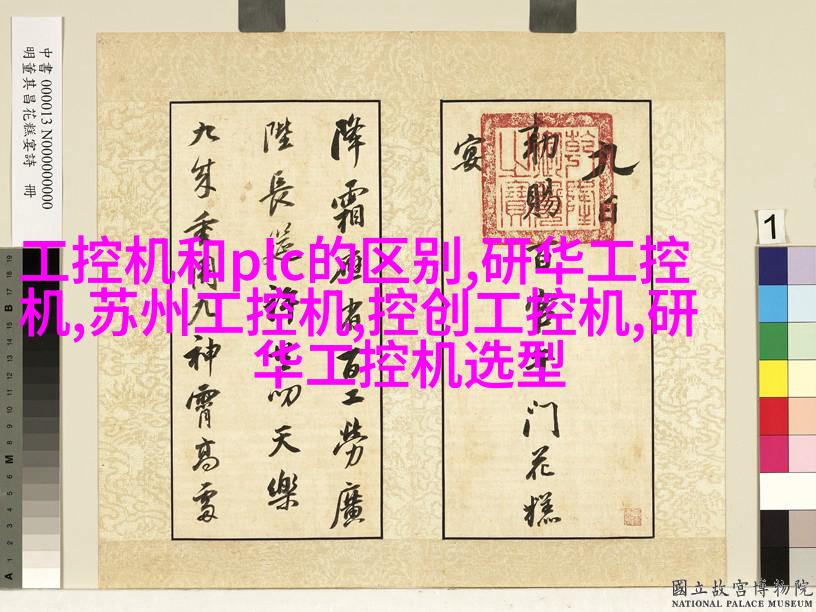 中書 000013 N000000000
明董其昌花糕宴詩 冊
工控机和plc的区别,研华工控
机,苏州工控机,控创工控机,研
华工控机选型
九日
勅賜百官午門花糕
宴
降霜 省百工勞廣
陛長 叨天樂
九 九神霄高
1
國立故宮博物院
NATIONAL PALACE MUSEUM